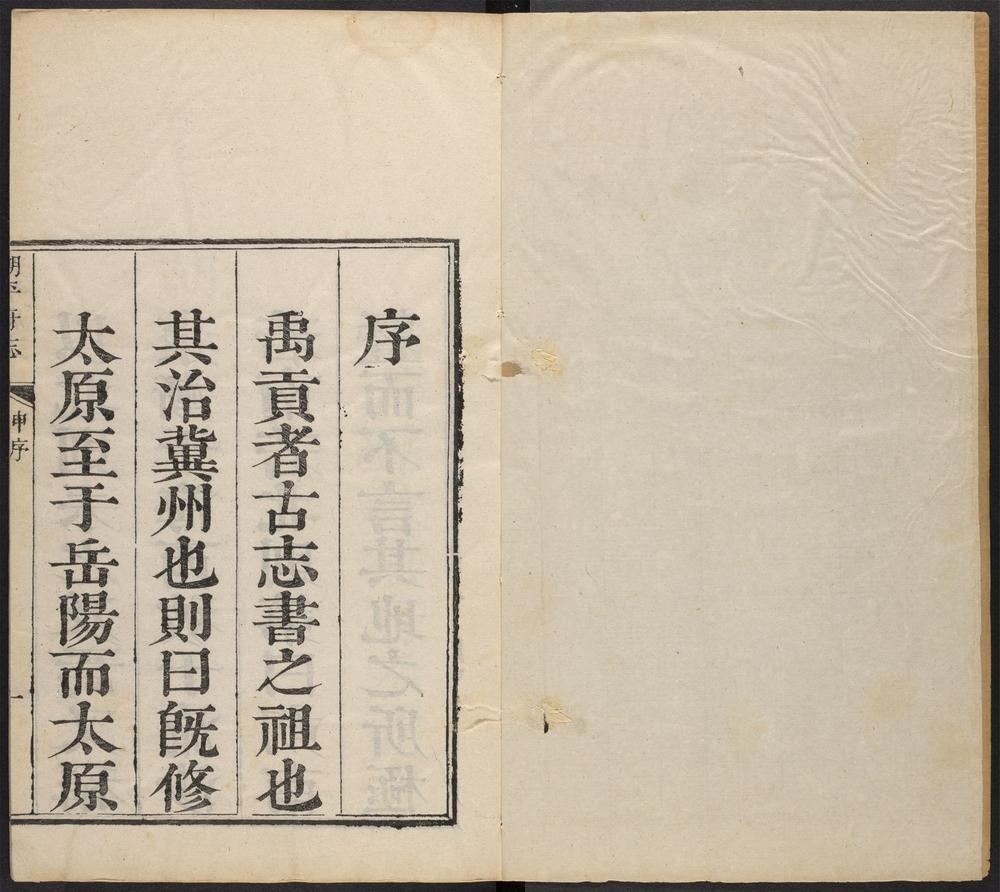 序
禹貢者古志書之祖也
其治冀州也則曰旣修
太原至于岳陽而太原
朔平府志
申序
一